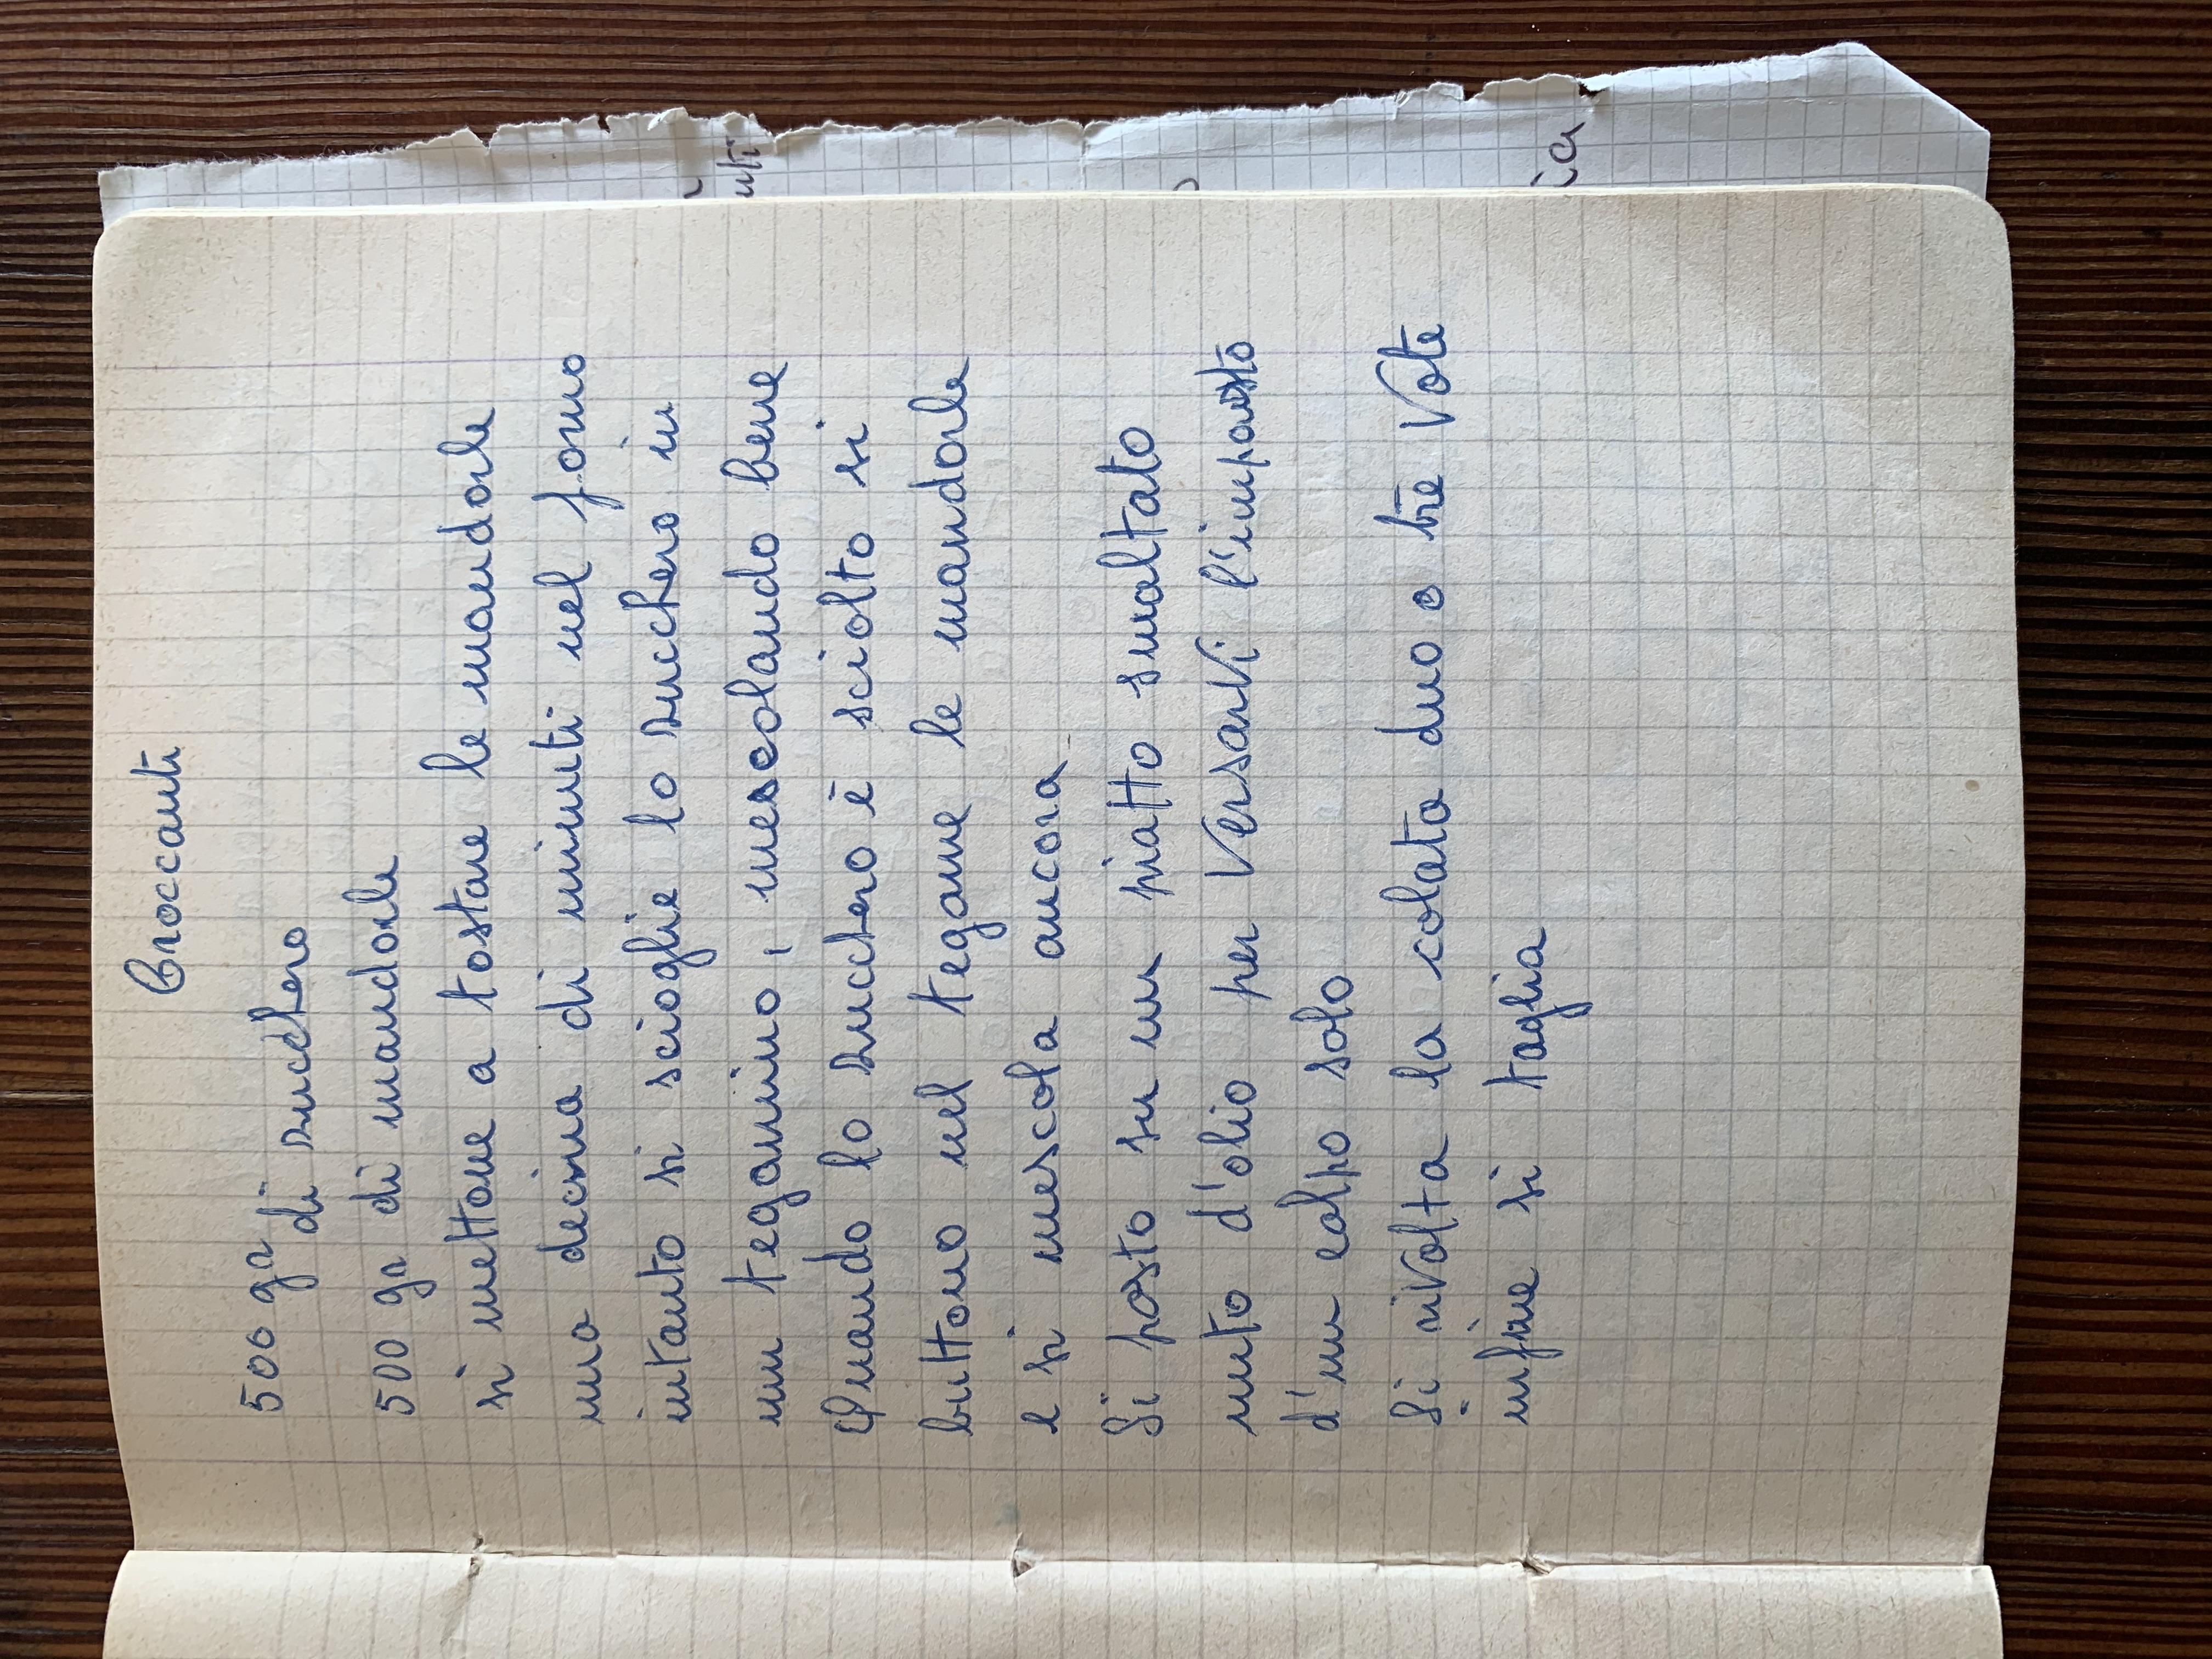 Croccanti
500 gr di zucchero
500 gr di mandorle
si mettone a tostare le mandorle
una decina di minuti nel forno
intanto si scioglie lo zucchero in
un tegamino, mescolando bene
Quando lo zucchero è sciolto si
buttono nel tegame le mandorle
e si mescola ancora
Si posto su un piatto smaltato
unto d'olio per Versarvi l'impasto
d'un colpo solo
Si rivolta la colata duo o tre Vote
infine si taglia
uti
ia